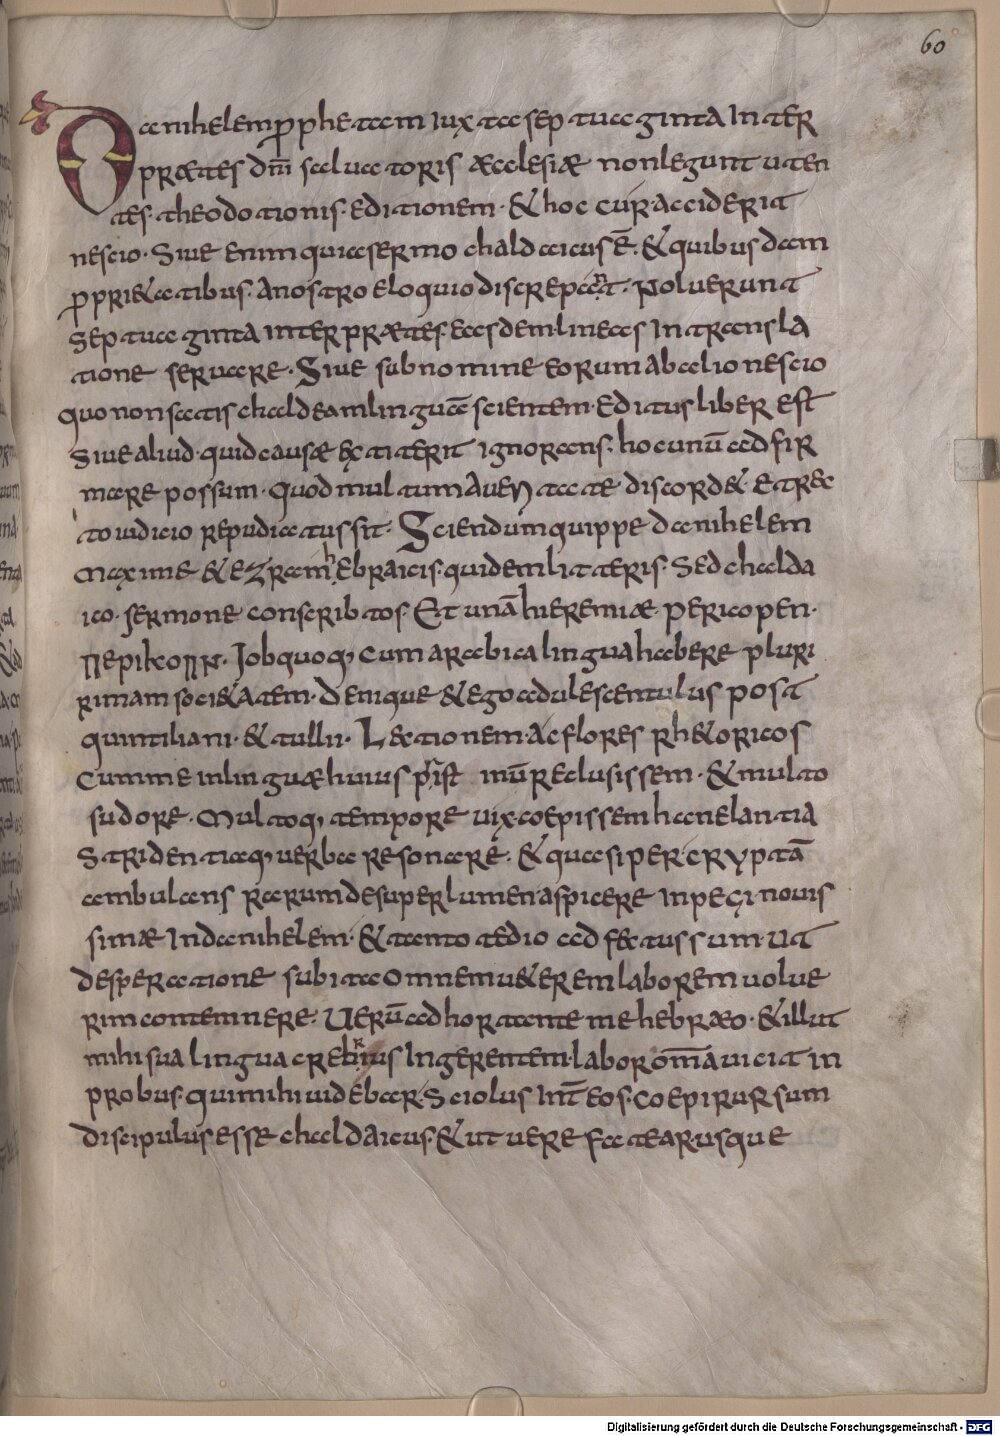 60
Danihelem ꝓphetam iuxta septuaginta inter
prætes dn̄i saluatoris æcclesiæ non legunt uten
tes· theodotionis· editionem· & hoc cur acciderit
nescio· Siue enim quia sermo chaldaicus ē· & quibusdam
ꝓpri&atibus· a nostro eloquio discrepat· Noluerunt
septuaginta interprætes· easdem lineas in transla
tione seruare· Siue sub nomine eorum ab alio nescio
quo non satis chaldeam linguā scientem· editus liber est
Siue aliud· quid causæ extiterit ignorans· hoc unū adfir
mare possum· quod multum a ueritate discord&· et rec
to iudicio repudiatus sit· Sciendum quippe danihelem
maxime & ezram hebraicis· quidem litteris· Sed chalda
ico· sermone conscribtos· Et unā hieremiæ pericopen·
Iob quoq; cum arabica lingua habere pluri
rimam soci&atem· Denique & ego adulescentulus post
quintiliani· & tullii· Lectionem· ac flores rh&oricos
cum me in linguæ huius pristinū reclusissem· & multo
sudore· multoq; tempore uix coepissem hanelantia
stridentiaq; uerba resonare· & quasi per cryptā
ambulans rarum desuper lumen aspicere inpegi nouis
simæ in danihelem· & tanto tedio adfectus sum· ut
desperatione subita omnem u&erem laborem uolue
rim contemnere· Uerū adhortante me hebræo· & illut
mihi sua lingua crebrius ingerentem· labor om̄ia uicit in
probus· qui mihi uidebar· Sciolus int̄ eos· coepi rursum
discipulus esse chaldaicus· & ut uere fatear· usque
Digitalisierung gefördert durch die Deutsche Forschungsgemeinschaft - DFG